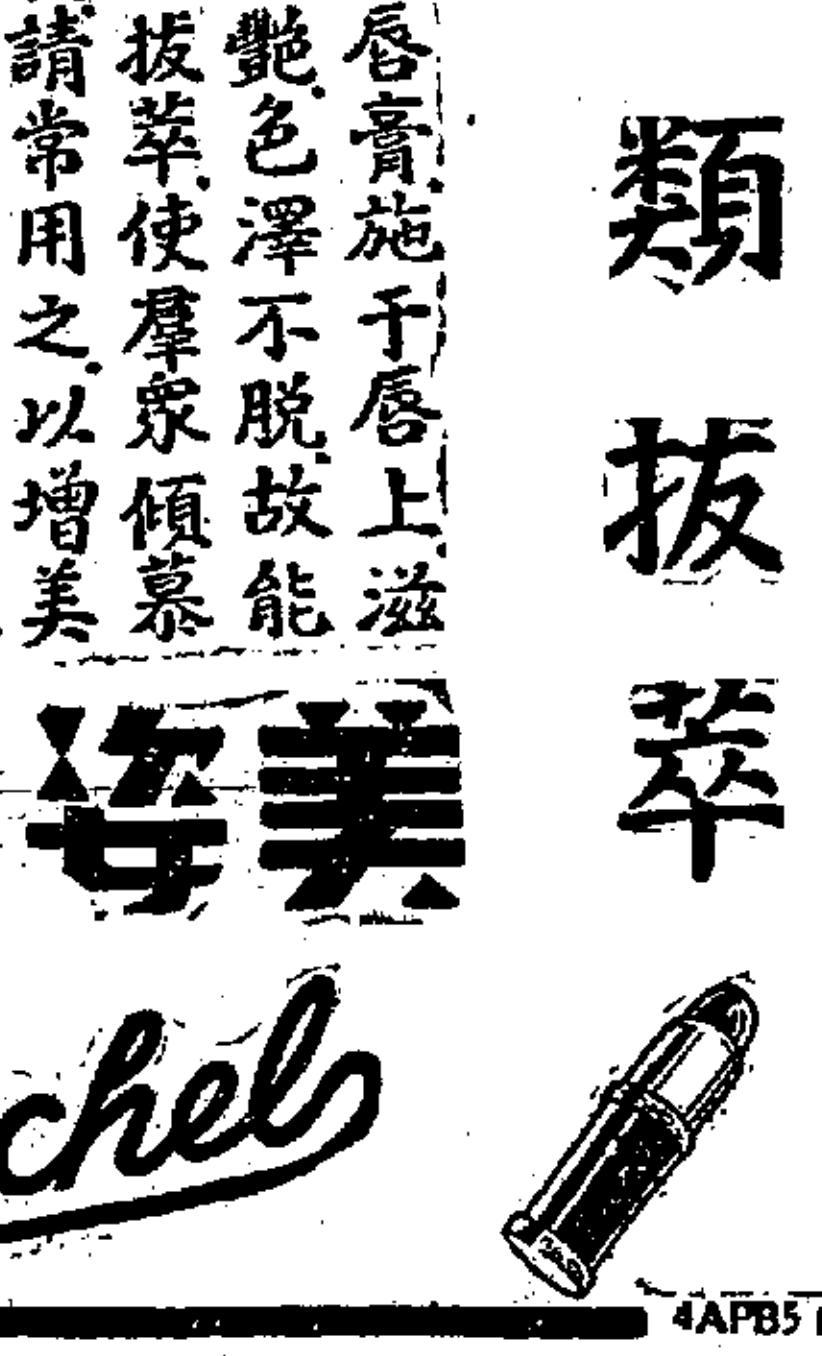 類拔萃
唇膏．施于唇上．滋
艷．色澤不脱．故能
拔萃．使羣眾傾慕
請常用之．以增美
美姿
chel
4APB5